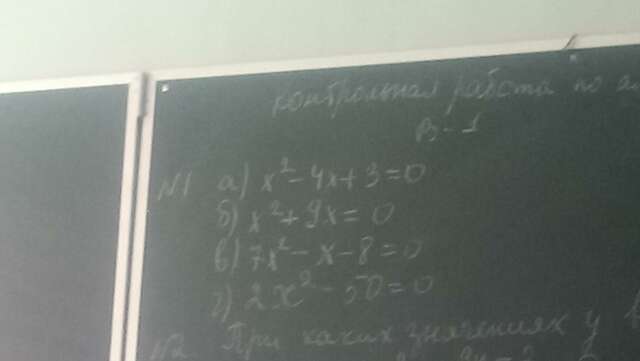 контрольная работа по
В-1
№1 а) x²-4x+3=0
б) x²+9x=0
в) 7x²-x-8=0
г) 2x²-50=0
№2. При каких значениях y